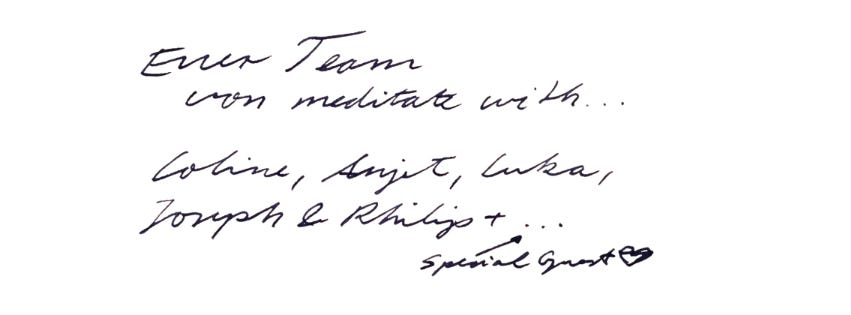 Euer Team
von meditate with...
Coline, Anjet, Luka,
Joseph & Philip + ...
special guest ♥